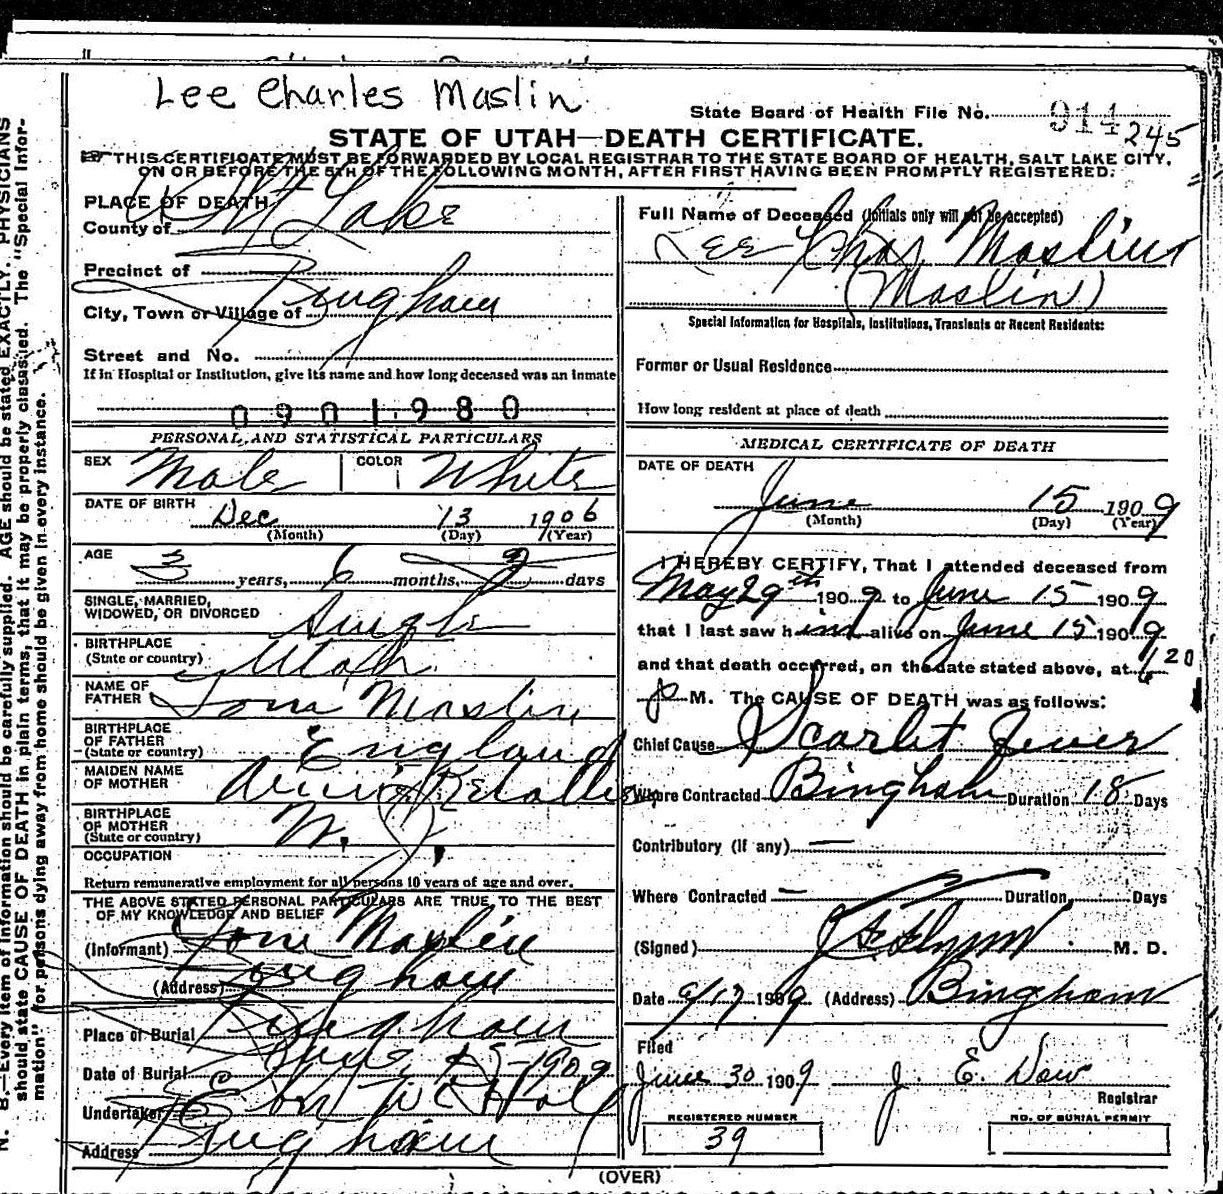 Lee Charles Maslin
State Board of Health File No. 914 245
STATE OF UTAH—DEATH CERTIFICATE.
THIS CERTIFICATE MUST BE FORWARDED BY LOCAL REGISTRAR TO THE STATE BOARD OF HEALTH, SALT LAKE CITY,
ON OR BEFORE THE 5TH OF THE FOLLOWING MONTH, AFTER FIRST HAVING BEEN PROMPTLY REGISTERED.
PLACE OF DEATH
County of Salt Lake
Precinct of
City, Town or Village of Bingham
Street and No.
If in Hospital or Institution, give its name and how long deceased was an inmate
0901980
PERSONAL AND STATISTICAL PARTICULARS
SEX Male COLOR White
DATE OF BIRTH Dec 13 1906
(Month) (Day) (Year)
AGE
3 years, 6 months, 2 days
SINGLE, MARRIED,
WIDOWED, OR DIVORCED Single
BIRTHPLACE
(State or country) Utah
NAME OF
FATHER Tom Maslin
BIRTHPLACE
OF FATHER
(State or country) England
MAIDEN NAME
OF MOTHER
BIRTHPLACE
OF MOTHER
(State or country) N. J.
OCCUPATION
Return remunerative employment for all persons 10 years of age and over.
THE ABOVE STATED PERSONAL PARTICULARS ARE TRUE TO THE BEST
OF MY KNOWLEDGE AND BELIEF
(Informant) Tom Maslin
(Address) Bingham
Place of Burial Bingham
Date of Burial June 15-1909
Undertaker
Address Bingham
Full Name of Deceased (Initials only will not be accepted)
Lee Chas Maslin
(Maslin)
Special Information for Hospitals, Institutions, Transients or Recent Residents:
Former or Usual Residence
How long resident at place of death
MEDICAL CERTIFICATE OF DEATH
DATE OF DEATH
June 15 1909
(Month) (Day) (Year)
I HEREBY CERTIFY, That I attended deceased from
May 29th 1909 to June 15 1909
that I last saw him alive on June 15 1909
and that death occurred, on the date stated above, at 6 20
p M. The CAUSE OF DEATH was as follows:
Chief Cause Scarlet Fever
Where Contracted Bingham Duration 18 Days
Contributory (if any) —
Where Contracted — Duration Days
(Signed) M. D.
Date 6/17 1909 (Address) Bingham
Filed
June 30 1909 J. E. Dow
Registrar
REGISTERED NUMBER
39
NO. OF BURIAL PERMIT
(OVER)
N. B.—Every item of information should be carefully supplied. AGE should be stated EXACTLY. PHYSICIANS
should state CAUSE OF DEATH in plain terms, that it may be properly classified. The "Special Infor-
mation" for persons dying away from home should be given in every instance.